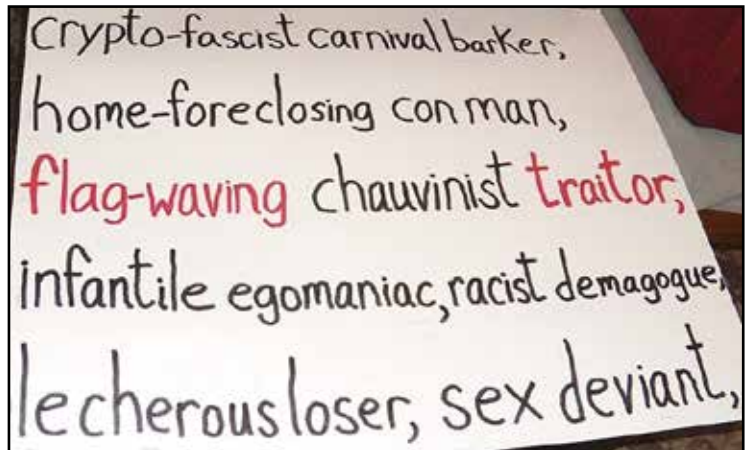 crypto-fascist carnival barker,
home-foreclosing con man,
flag-waving chauvinist traitor,
infantile egomaniac, racist demagogue,
lecherous loser, sex deviant,